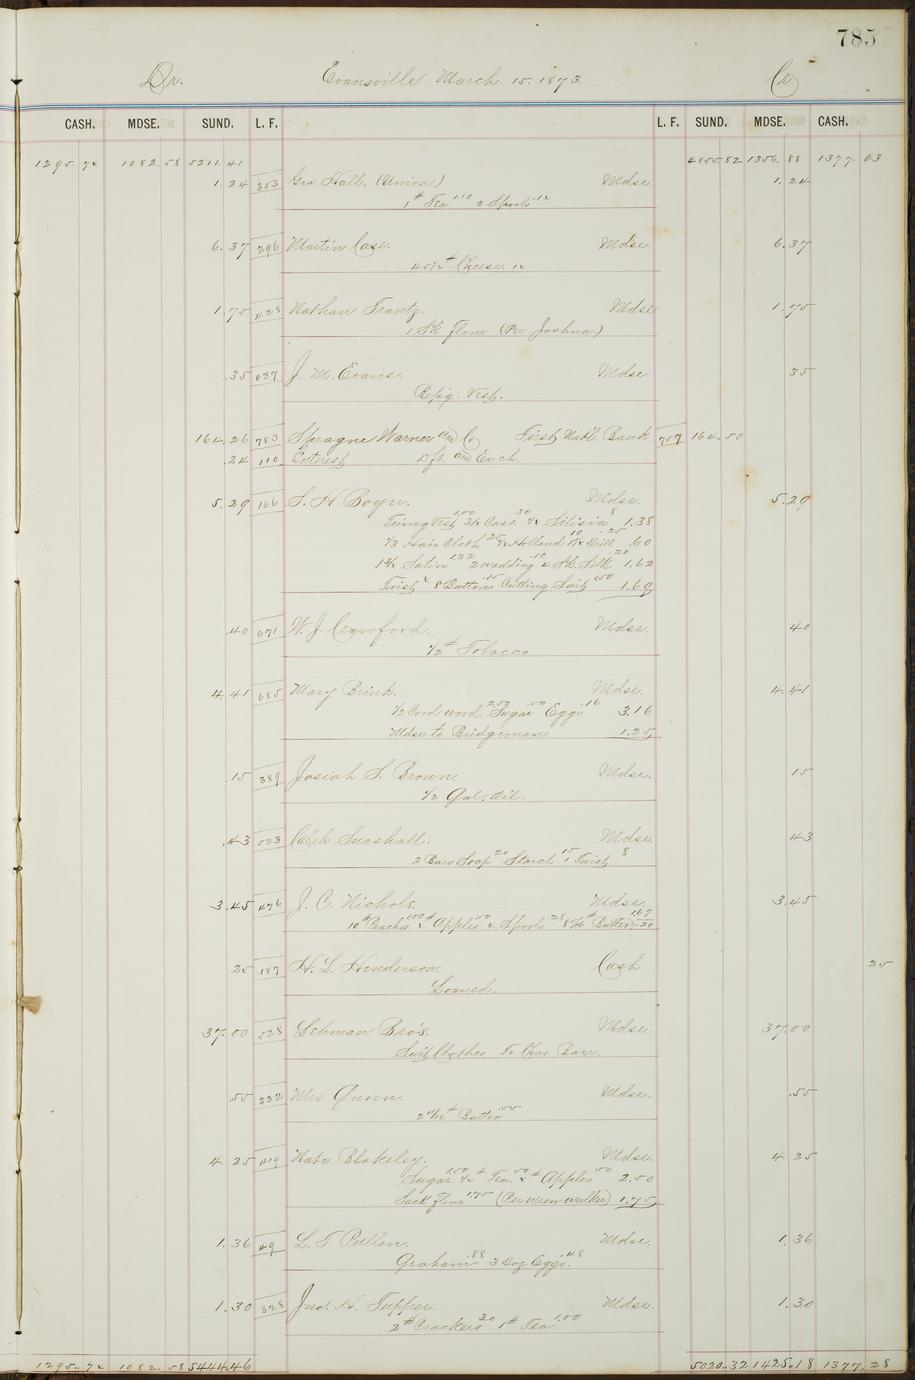 785
Dr. Evansville March. 15. 1873. Cr.
CASH. MDSE. SUND. L. F. L. F. SUND. MDSE. CASH.
1295.74 1082.58 5211.41 4855.82 1356.88 1377.03
1.24 353 Geo. Hall. (Union) Mdse. 1.24
1# Tea 1.10 2 Spools .14
6.37 296 Martin Case. Mdse. 6.37
45 1/2# Cheese. 14
1.75 428 Nathan Frantz. Mdse. 1.75
1 Sk flour (Per Joshua)
.35 637 J. M. Evans. Mdse. 35
Vest.
164.26 783 Sprague Warner and Co First Natl. Bank. 757 164.50
.24 110 Interest Dft. and Exch.
5.29 166 Mdse. 5.29
Trimg Vest 1.00 3/4 .30 1/4 Silisia 8 1.38
1/3 Hair Cloth 25 Holland 10 .25 .60
Satin 1.32 2 wadding .10 4 Sk. Silk. .20 1.62
Twist 4 8 Buttons .15 Cutting Suit 1.50 1.69
.40 671 W. J. Crawford. Mdse. 40
1/2# Tobacco.
4.41 685 Mary Brink. Mdse. 4.41
1/2 Cord wood. 2.50 Sugar .50 Eggs .16 3.16
Mdse to Bridgman 1.25
.15 389 Josiah S. Brown. Mdse. 15
1/2 Gal. Oil.
.43 523 Caleb Snashall. Mdse. 43
2 Bars Soap 20 Starch 15 1 Twist 8
3.45 476 J. C. Nichols. Mdse. 3.45
10# Peaches 1.00 4# Apples .50 4 Spools .28 Butter 1.67 20
25 187 H. L. Henderson. Cash 25
Loaned.
37.00 528 Lehman Bro's. Mdse. 37.00
Suit Clothes To Chas. Barr.
.55 332 Mrs. Gunn. Mdse. .55
Butter .55
4.25 419 Nate Blakeley. Mdse. 4.25
Sugar 1.50 1/2# Tea. .50 4# Apples .50 2.50
Sack flour 1.75 (Per walker) 1.75
1.36 49 L. T. Pullen. Mdse. 1.36
Graham .88 3 Doz Eggs. .48
1.30 328 Jno. H. Tupper. Mdse. 1.30
2# Crackers 30 1# Tea 1.00
1295.74 1082.58 5444.46 5020.32 1425.18 1377.28